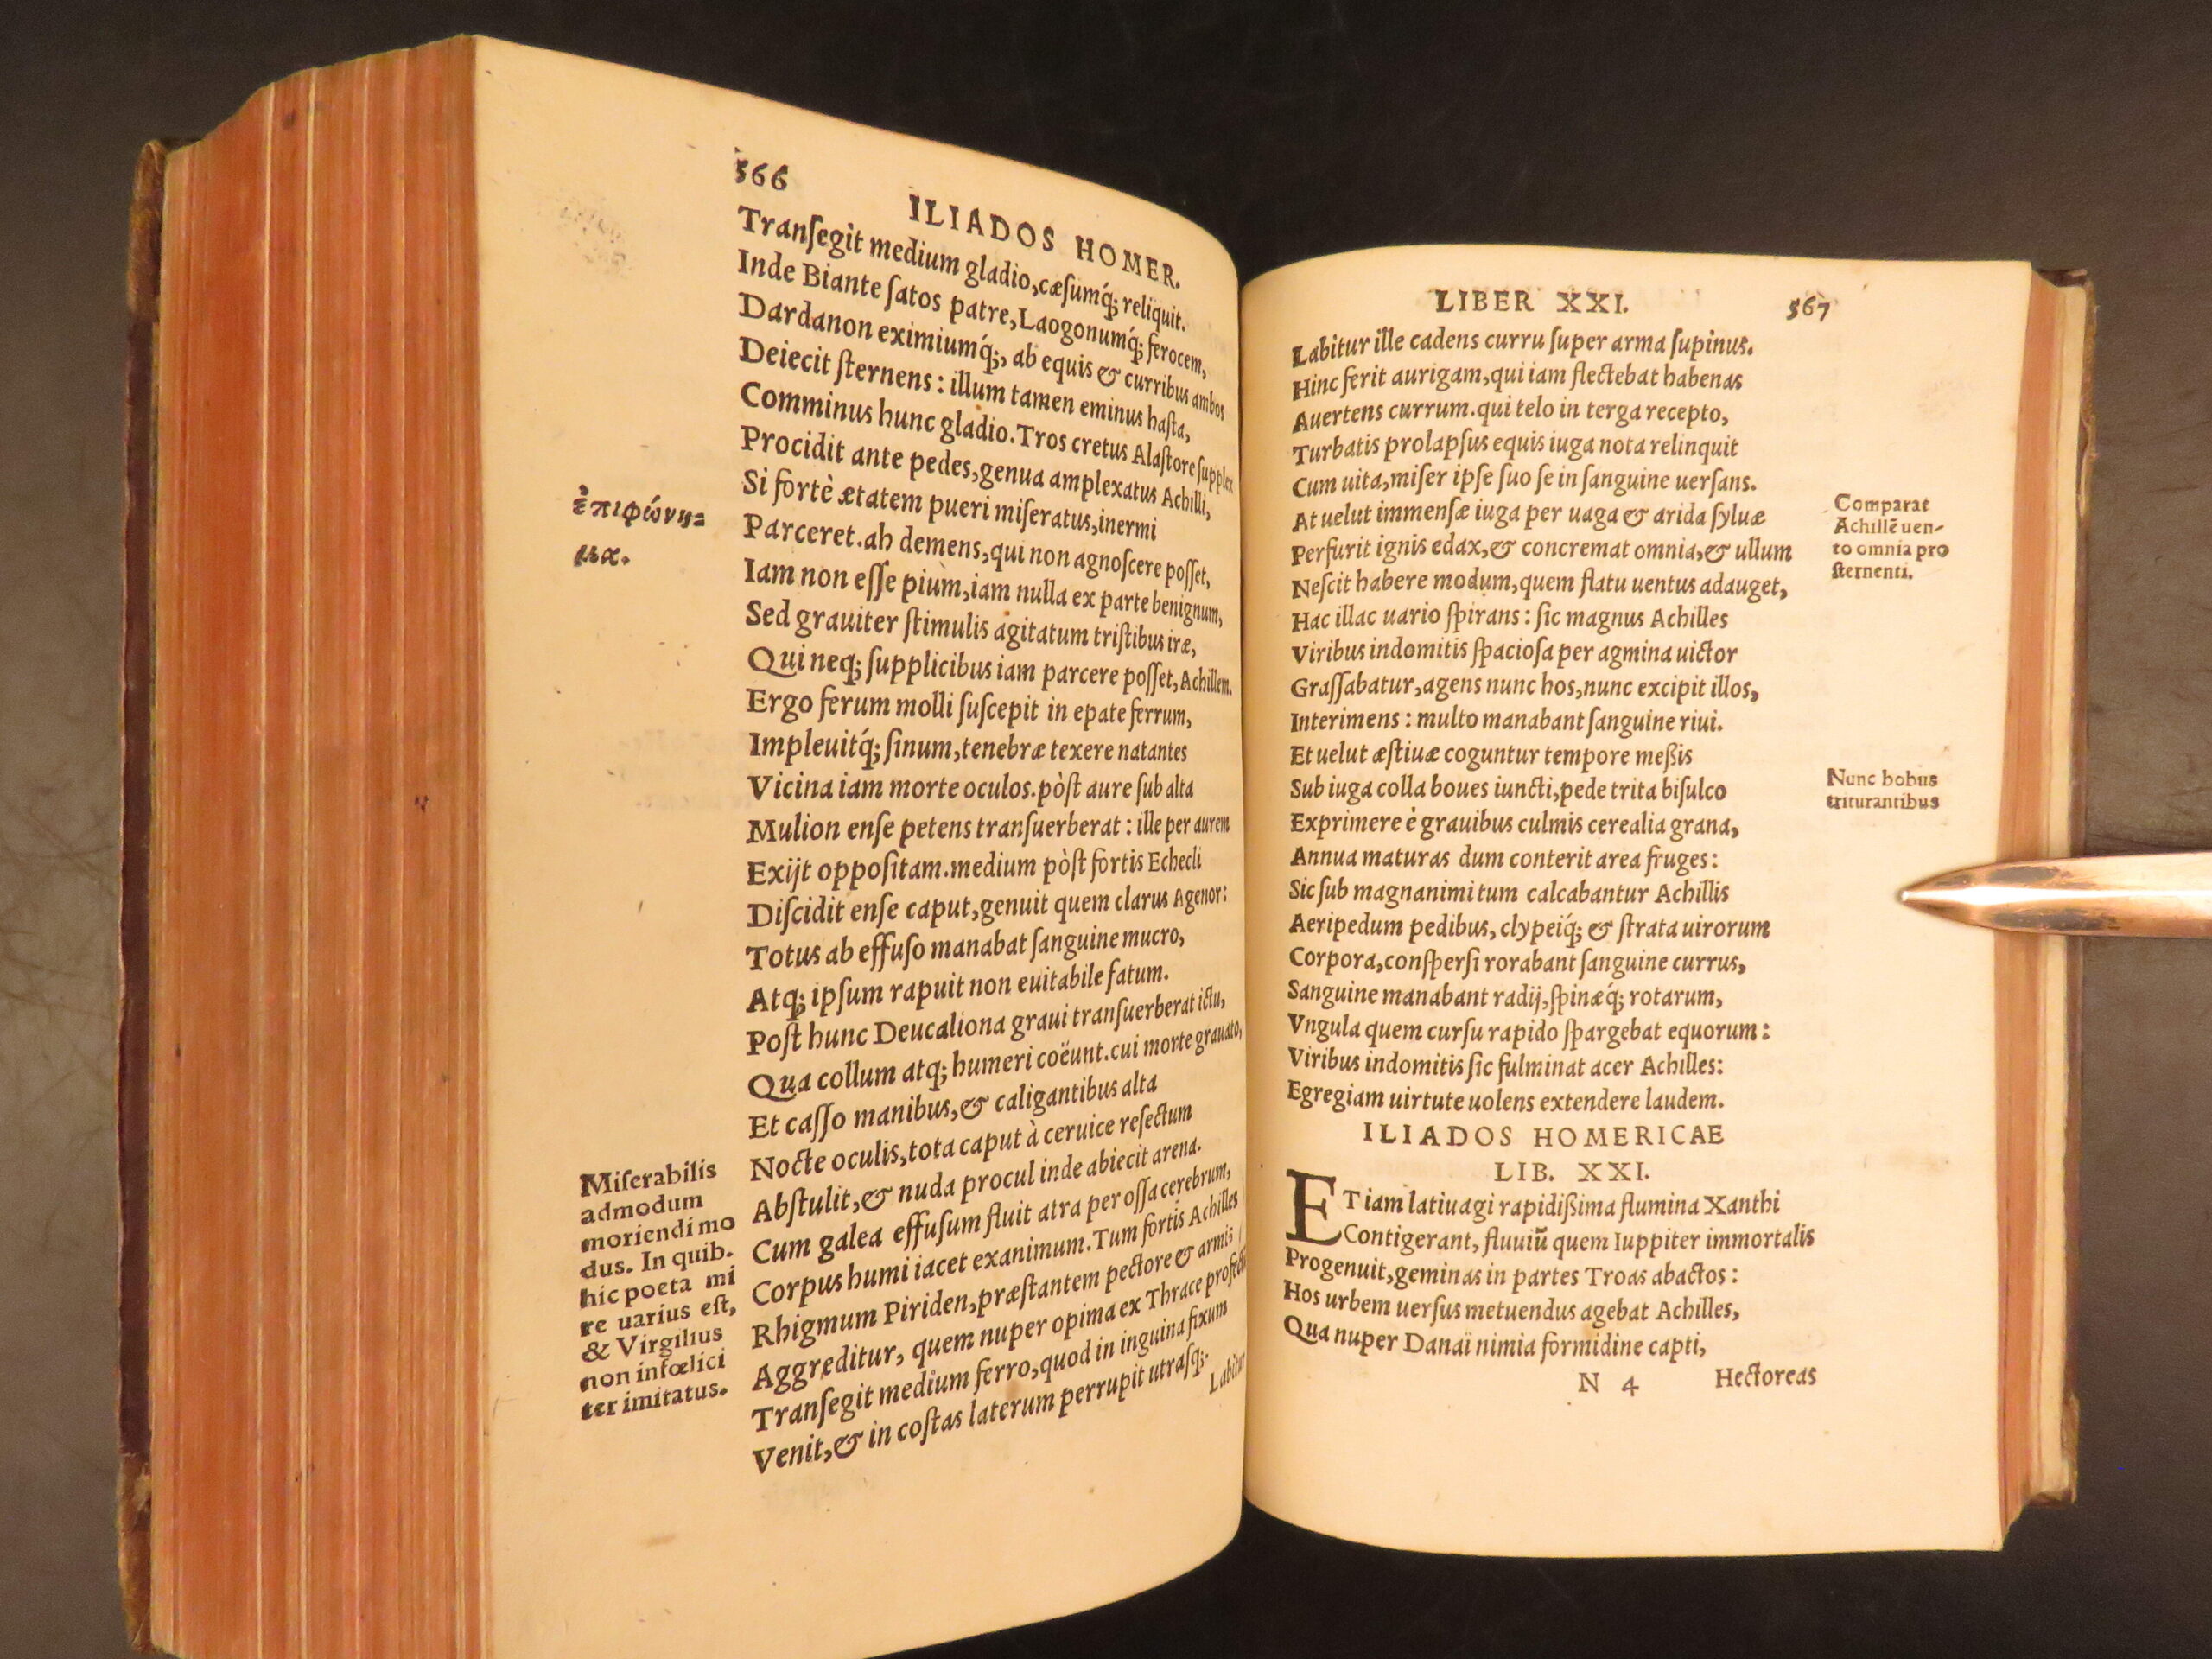 566
ILIADOS HOMER.
Tranſegit medium gladio,cæſumq́; reliquit.
Inde Biante ſatos patre,Laogonumq́; ferocem,
Dardanon eximiumq́;, ab equis & curribus ambos
Deiecit ſternens : illum tamen eminus haſta,
Comminus hunc gladio.Tros cretus Alaſtore ſupplex
Procidit ante pedes,genua amplexatus Achilli,
Si fortè ætatem pueri miſeratus,inermi
Parceret.ah demens,qui non agnoſcere poſſet,
Iam non eſſe pium,iam nulla ex parte benignum,
Sed grauiter ſtimulis agitatum triſtibus iræ,
Qui neq; ſupplicibus iam parcere poſſet,Achillem.
Ergo ferum molli ſuſcepit in epate ferrum,
Impleuitq́; ſinum,tenebræ texere natantes
Vicina iam morte oculos.pòſt aure ſub alta
Mulion enſe petens tranſuerberat : ille per aurem
Exijt oppoſitam.medium pòſt fortis Echecli
Diſcidit enſe caput,genuit quem clarus Agenor:
Totus ab effuſo manabat ſanguine mucro,
Atq; ipſum rapuit non euitabile fatum.
Poſt hunc Deucaliona graui tranſuerberat ictu,
Qua collum atq; humeri coëunt.cui morte grauato,
Et caſſo manibus,& caligantibus alta
Nocte oculis,tota caput à ceruice reſectum
Abſtulit,& nuda procul inde abiecit arena.
Cum galea effuſum fluit atra per oſſa cerebrum,
Corpus humi iacet exanimum.Tum fortis Achilles
Rhigmum Piriden,præſtantem pectore & armis
Aggreditur, quem nuper opima ex Thrace
Tranſegit medium ferro,quod in inguina fixum
Venit,& in coſtas laterum perrupit utraſq;.
Labitur
ἐπιφώνη=
μα.
Miſerabilis
admodum
moriendi mo
dus. In quib.
hic poeta mi
re uarius eſt,
& Virgilius
non infœlici
ter imitatus.
LIBER XXI.
567
Labitur ille cadens curru ſuper arma ſupinus.
Hinc ferit aurigam,qui iam flectebat habenas
Auertens currum.qui telo in terga recepto,
Turbatis prolapſus equis iuga nota relinquit
Cum uita,miſer ipſe ſuo ſe in ſanguine uerſans.
At uelut immenſæ iuga per uaga & arida ſyluæ
Perfurit ignis edax,& concremat omnia,& ullum
Neſcit habere modum,quem flatu uentus adauget,
Hac illac uario ſpirans : ſic magnus Achilles
Viribus indomitis ſpacioſa per agmina uictor
Graſſabatur,agens nunc hos,nunc excipit illos,
Interimens : multo manabant ſanguine riui.
Et uelut æſtiuæ coguntur tempore meßis
Sub iuga colla boues iuncti,pede trita biſulco
Exprimere è grauibus culmis cerealia grana,
Annua maturas dum conterit area fruges:
Sic ſub magnanimi tum calcabantur Achillis
Aeripedum pedibus, clypeiq́; & ſtrata uirorum
Corpora,conſperſi rorabant ſanguine currus,
Sanguine manabant radij,ſpinæq́; rotarum,
Vngula quem curſu rapido ſpargebat equorum :
Viribus indomitis ſic fulminat acer Achilles:
Egregiam uirtute uolens extendere laudem.
ILIADOS HOMERICAE
LIB. XXI.
ETiam latiuagi rapidißima flumina Xanthi
Contigerant, fluuiū quem Iuppiter immortalis
Progenuit,geminas in partes Troas abactos :
Hos urbem uerſus metuendus agebat Achilles,
Qua nuper Danai nimia formidine capti,
N 4
Hectoreas
Comparat
Achillē uen-
to omnia pro
ſternenti.
Nunc bobus
triturantibus